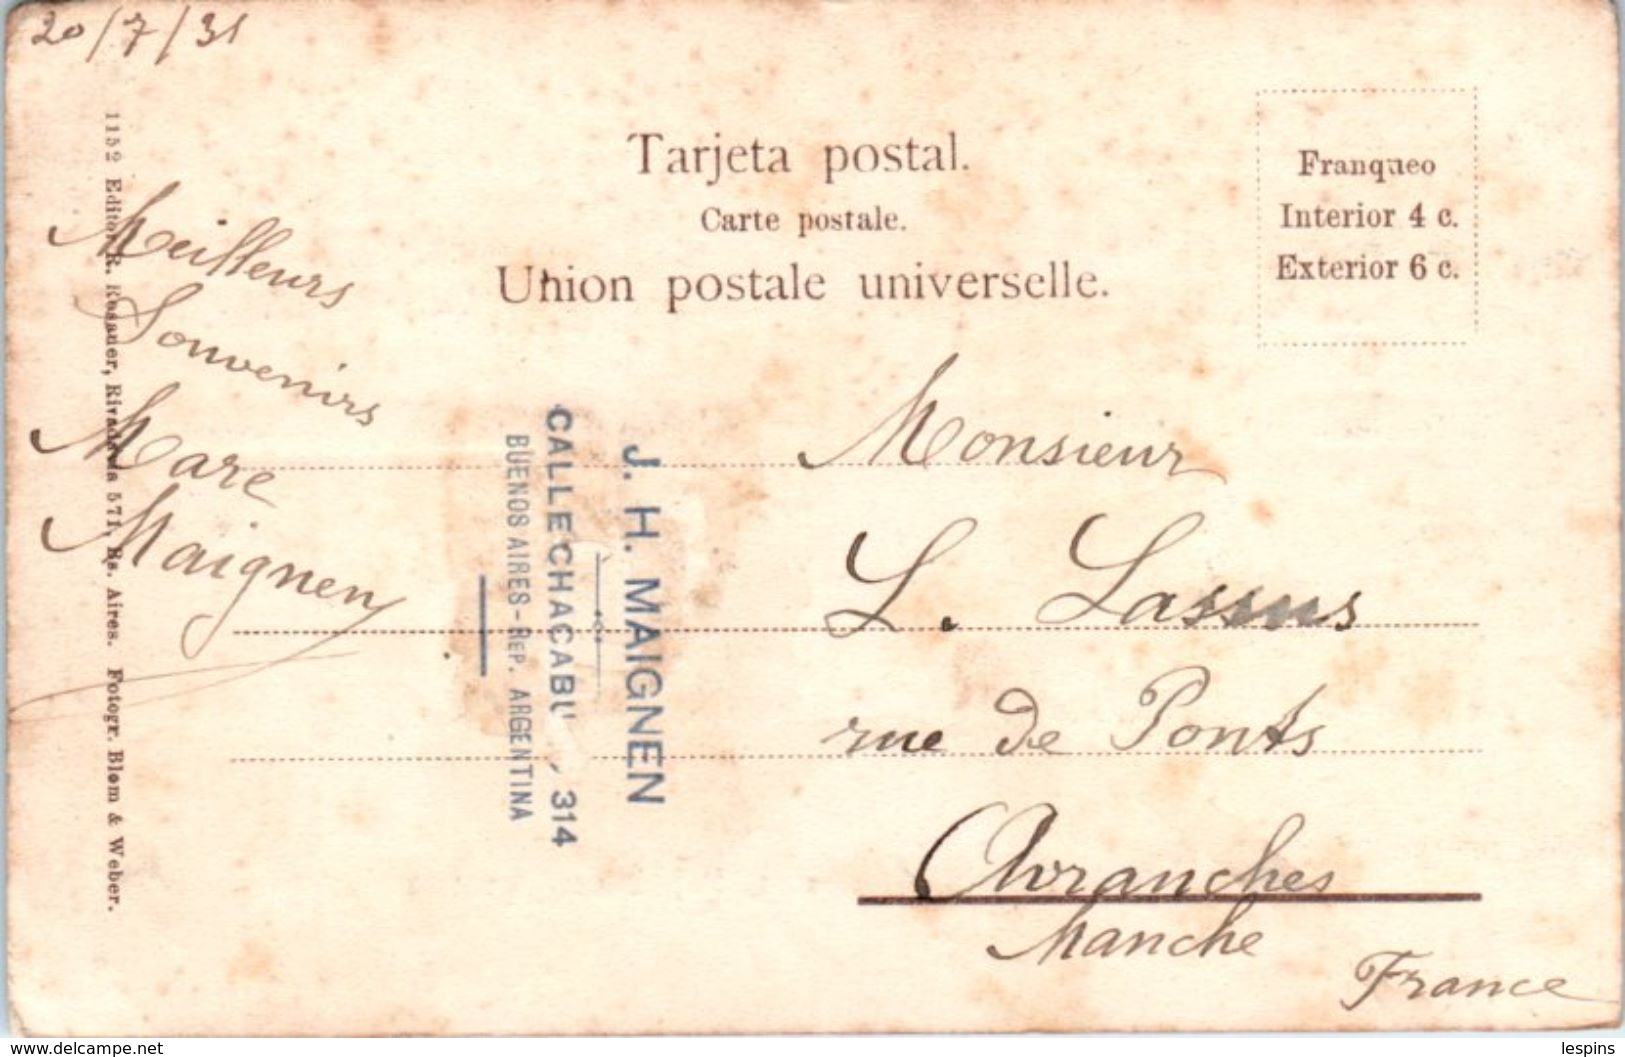 20/7/31
Tarjeta postal.
Carte postale.
Union postale universelle.
Franqueo
Interior 4 c.
Exterior 6 c.
1152 Editor R. Rosauer, Rivadavia 571, Bs. Aires. Fotogr. Blom & Weber.
Meilleurs
Souvenirs
Marc
Maignen
J. H. MAIGNEN
CALLE CHACABU , 314
BUENOS AIRES - REP. ARGENTINA
Monsieur
L. Lassus
rue de Ponts
Avranches
Manche
France
www.delcampe.net
lespins